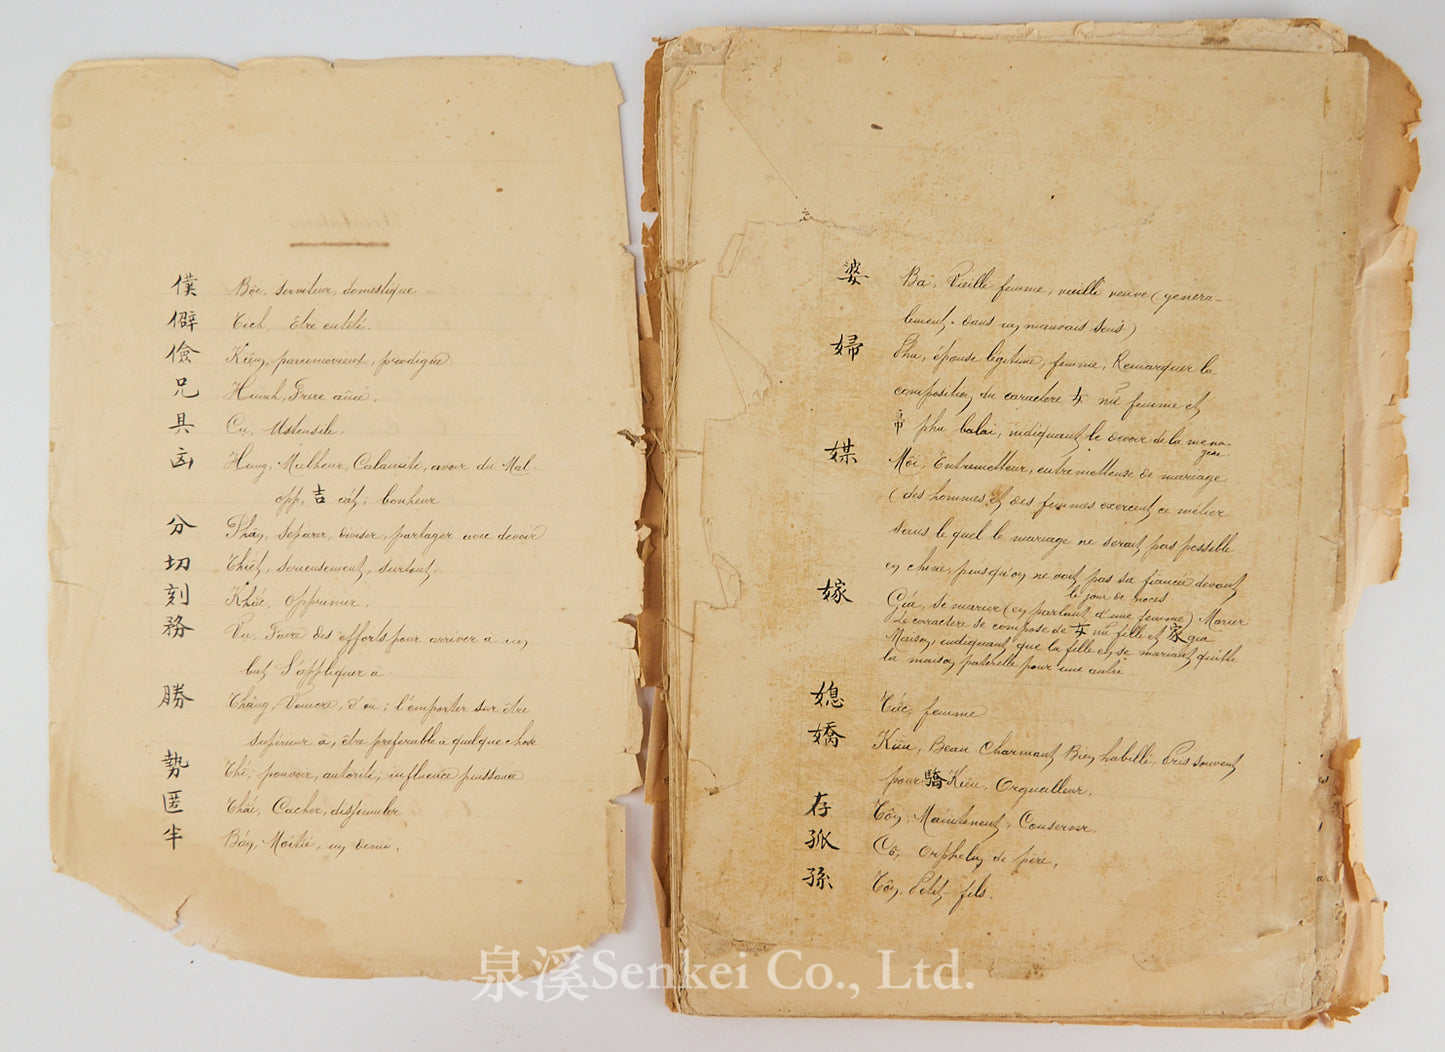 僕 Bộc, serviteur, domestique
僻 Tích, Etre entêté.
儉 Kiệm, parcimonieux, prodigue
兄 Huinh, Frere aîné,
具 Cu, Ustensile,
凶 Hung, Malheur, Calamité, avoir du Mal
opp, 吉 cát, bonheur
分 Phân, séparer, diviser, partager avec devoir
切 Thiết, serieusement, surtout.
刻 Khắc, opprimer,
務 Vu, Faire des efforts pour arriver à un
but S'appliquer à
勝 Thắng, Vaincre, d'où; l'emporter sur être
supérieur à, être preferable a quelque chose
勢 Thê; pouvoir, autorité; influence puissance
匿 Cacher, dissimuler
半 Bán, Moitié, un demi,
婆 Bà, Vieille femme, vieille veuve (généra-
lement. dans un mauvais sens.)
婦 Phu, épouse légitime, femme, Remarquer la
composition du caractère 女 nữ femme et
帚 phu balai, indiquant le devoir de la mena-
gère.
媒 Môi, Entremetteur, entremetteuse de mariage
(des hommes et des femmes exercent ce métier
sans le quel le mariage ne serait pas possible
en chine, puisqu'on ne voit pas sa fiancée devant
le jour de noces
嫁 Giá, se marier (en parlant d'une femme) Marier
Le caractère se compose de 女 nữ fille et 家 gia
Maison, indiquant que la fille en se mariant quitte
la maison paternelle pour une autre
媳 Tức, femme
嬌 Kiều, Beau Charmant Bien habillé, Pris souvent
pour 驕 Kiêu, Orgueilleux,
存 Tồn, Maintenant, Conserver,
孤 Cô, Orphelin de père,
孫 Tôn, Petit-fils.
泉溪Senkei Co., Ltd.